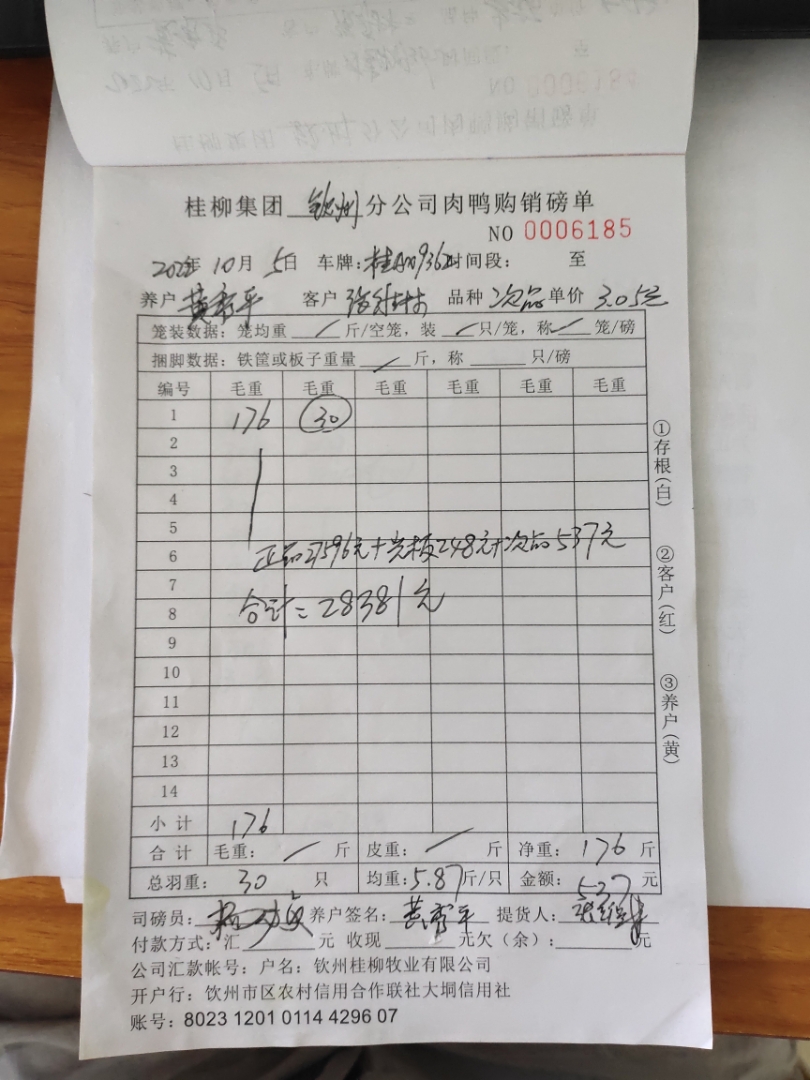 桂柳集团 钦州 分公司肉鸭购销磅单
NO 0006185
2022年 10月 5日 车牌: 时间段: 至
养户 黄 平 客户 品种 次品 单价 3.05元
笼装数据: 笼均重 / 斤/空笼, 装 / 只/笼, 称 / 笼/磅
捆脚数据: 铁筐或板子重量 / 斤, 称 只/磅
编号 毛重 毛重 毛重 毛重 毛重 毛重
1 176 30
2
3
4
5
6 正品27596元+光板248元+次品537元
7
8 合计=28381元
9
10
11
12
13
14
小计 176
合计 毛重: / 斤 皮重: / 斤 净重: 176 斤
总羽重: 30 只 均重: 5.87斤/只 金额: 537 元
司磅员: 养户签名: 黄 平 提货人:
付款方式: 汇 元 收现 元欠(余): 元
公司汇款帐号: 户名: 钦州桂柳牧业有限公司
开户行: 饮州市区农村信用合作联社大垌信用社
账号: 8023 1201 0114 4296 07
①存根(白)
②客户(红)
③养户(黄)